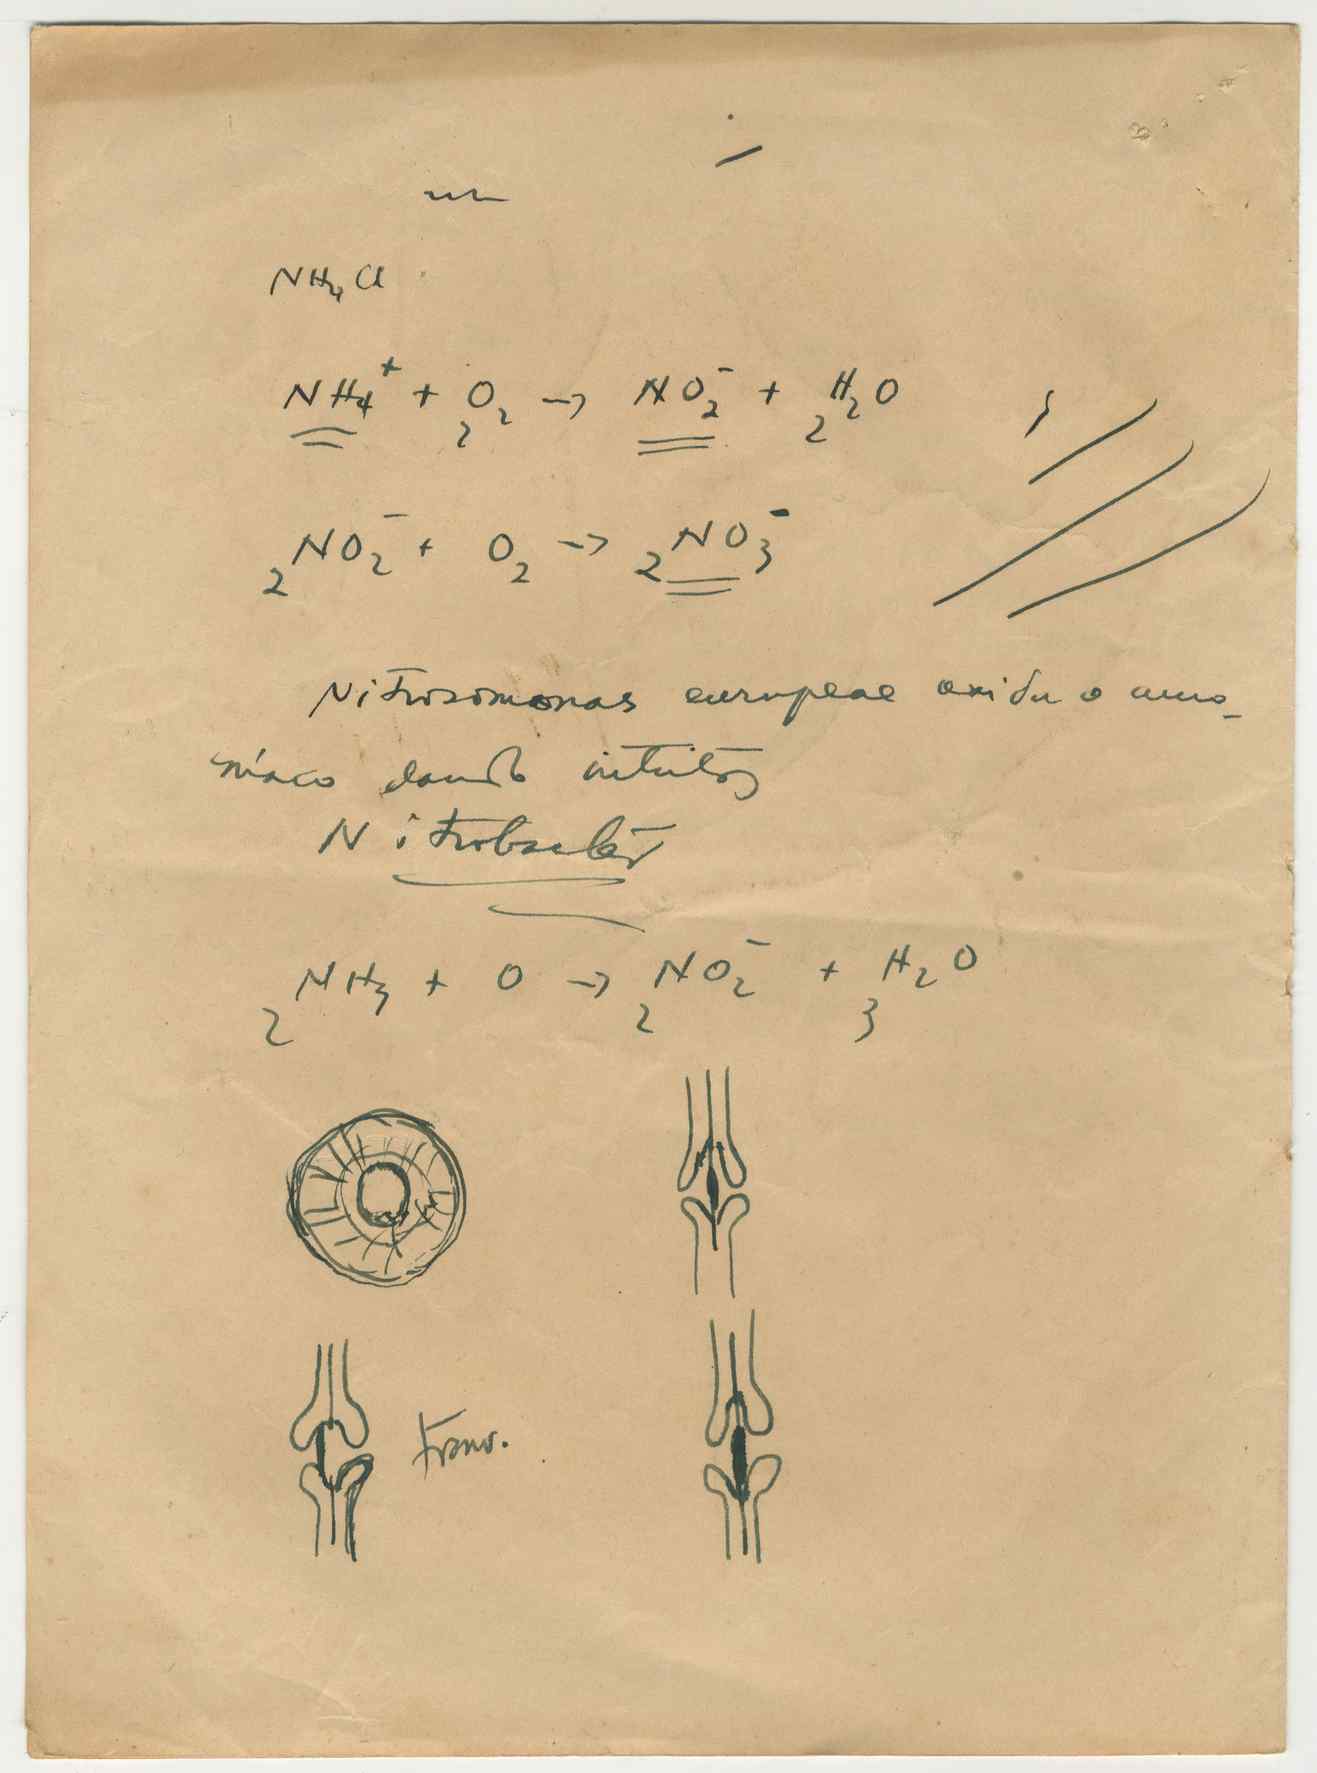 NH4Cl
NH4+ + 2O2 → NO2- + 2H2O
2NO2- + O2 → 2NO3-
Nitrosomonas europeae oxida o amo-
níaco dando nitritos
Nitrobacter
2NH3 + O → 2NO2- + 3H2O